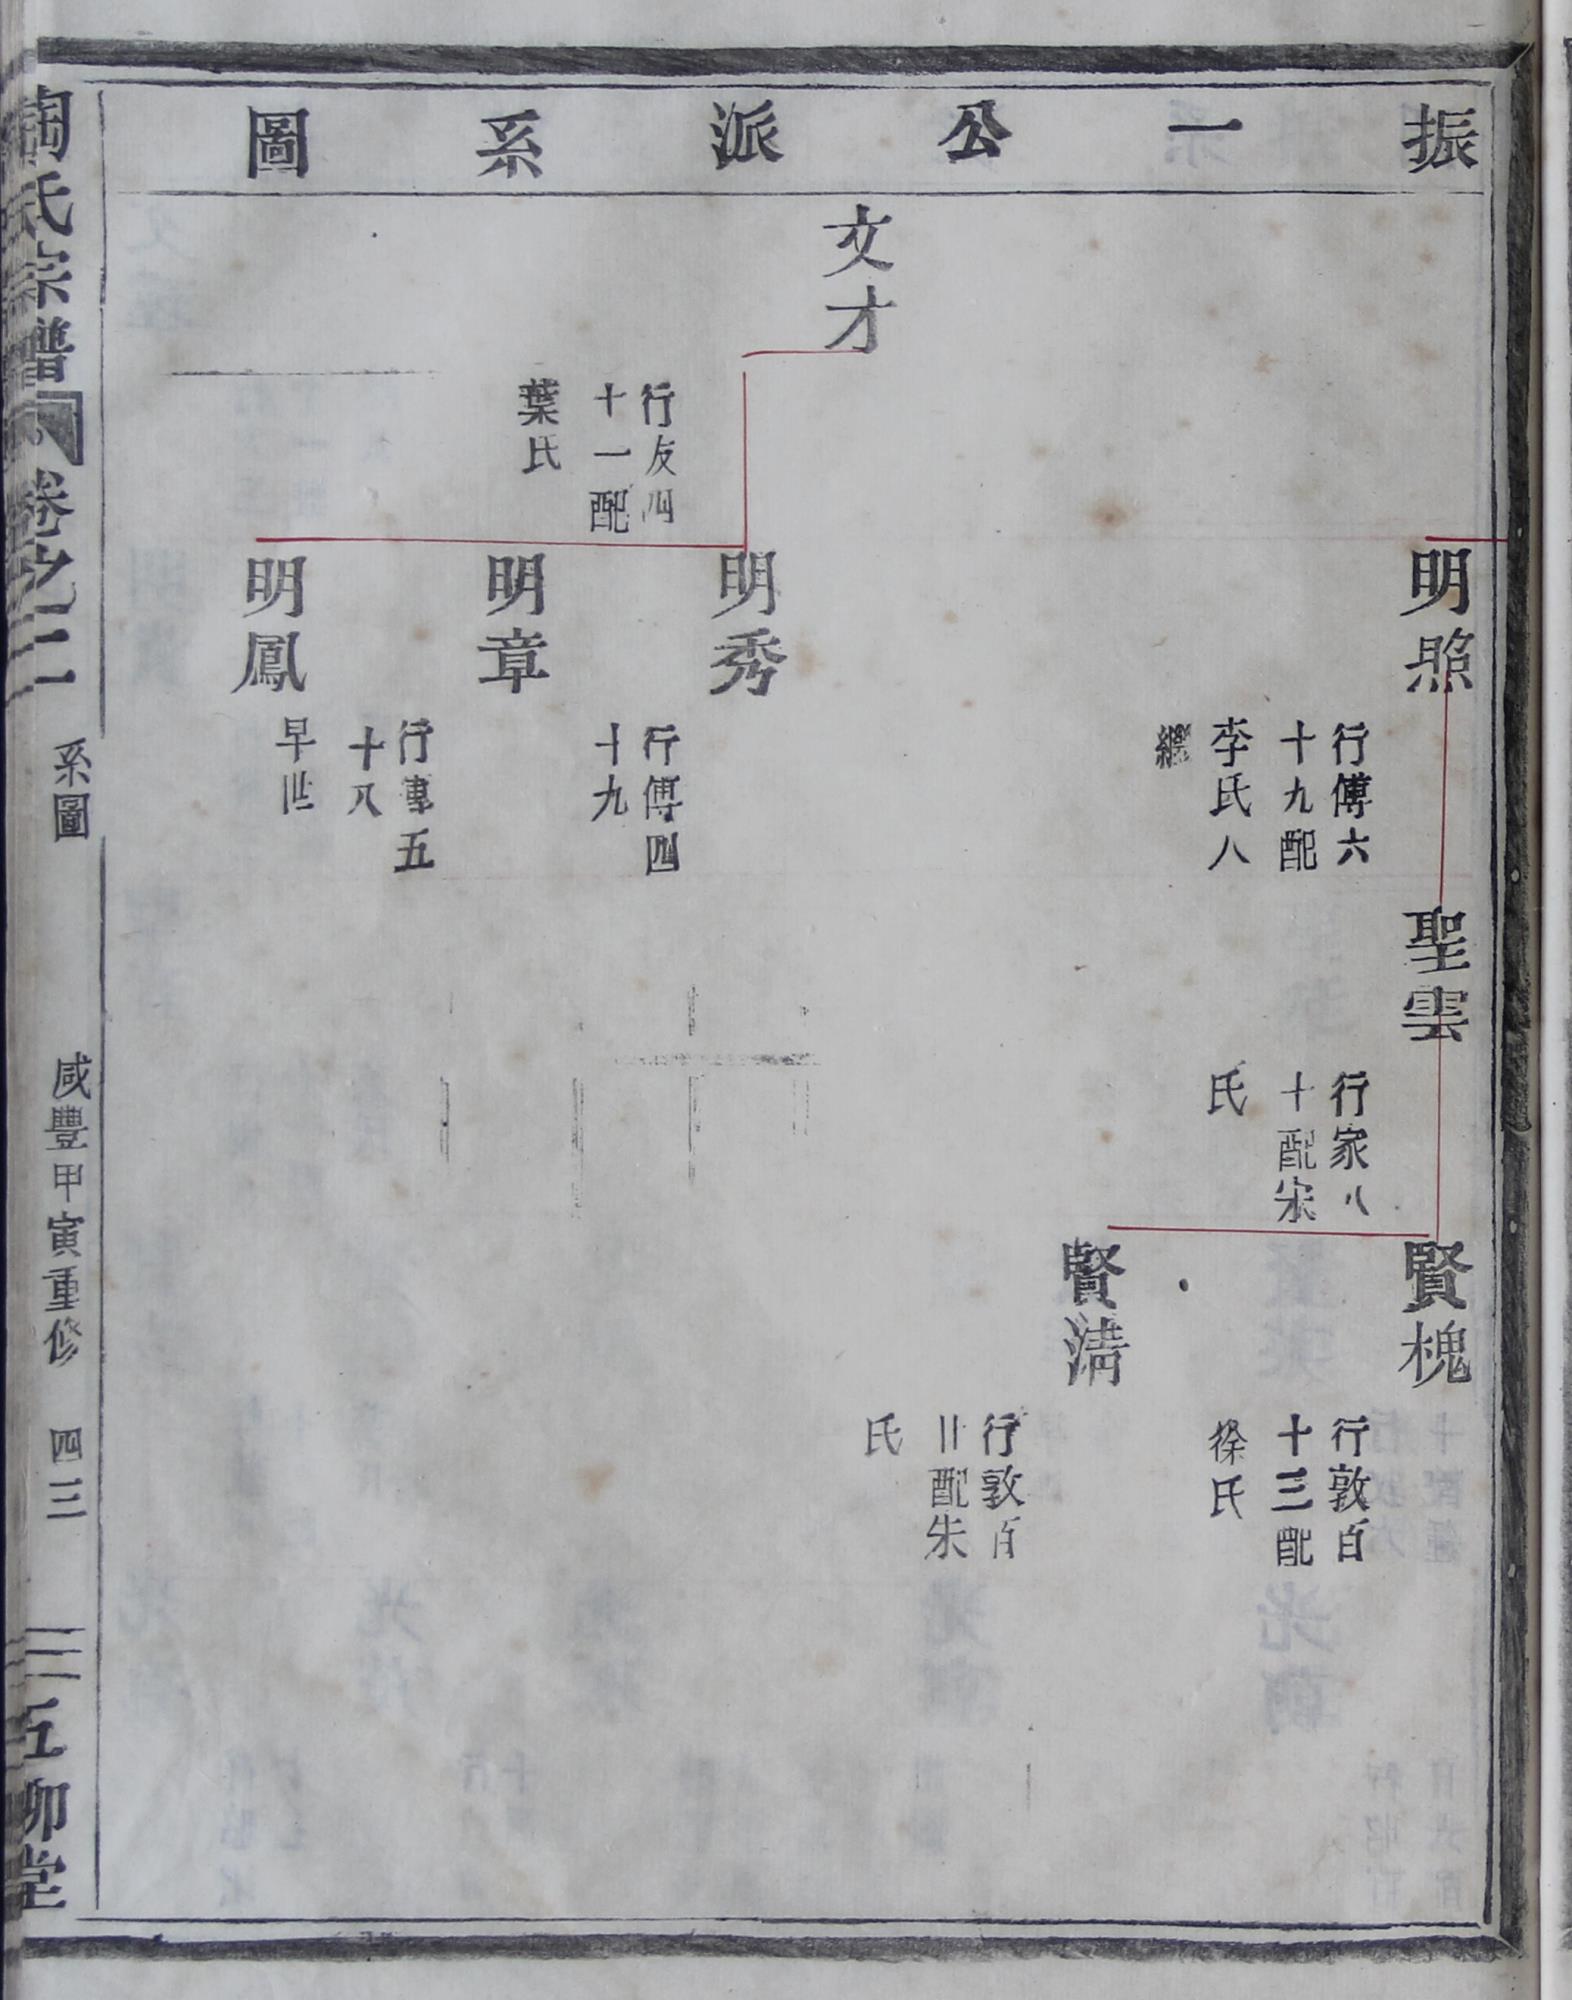 振一公派系圖
明照
行傅六
十九配
李氏八
繼
聖雲
行家八
十配宋
氏
賢槐
行敦百
十三配
徐氏
賢淸
行敦百
廿配朱
氏
文才
行友四
十一配
葉氏
明秀
行傅四
十九
明章
行傅五
十八
明鳳
早世
陶氏宗譜
卷之二
系圖
咸豐甲寅重修
四三
五柳堂